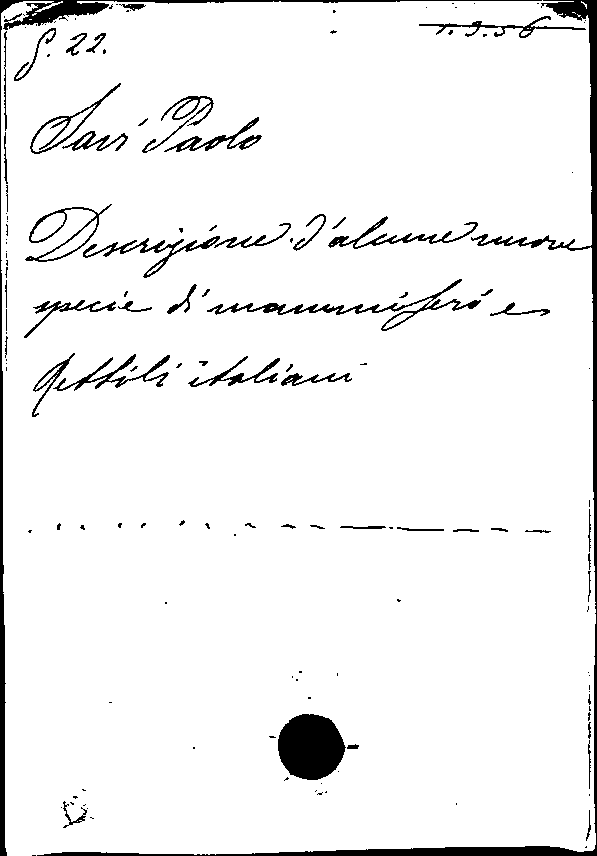 S. 22.
1.9.56
Savi Paolo
Descrizione d'alcune nuove
specie di mammiferi e
Rettili italiani